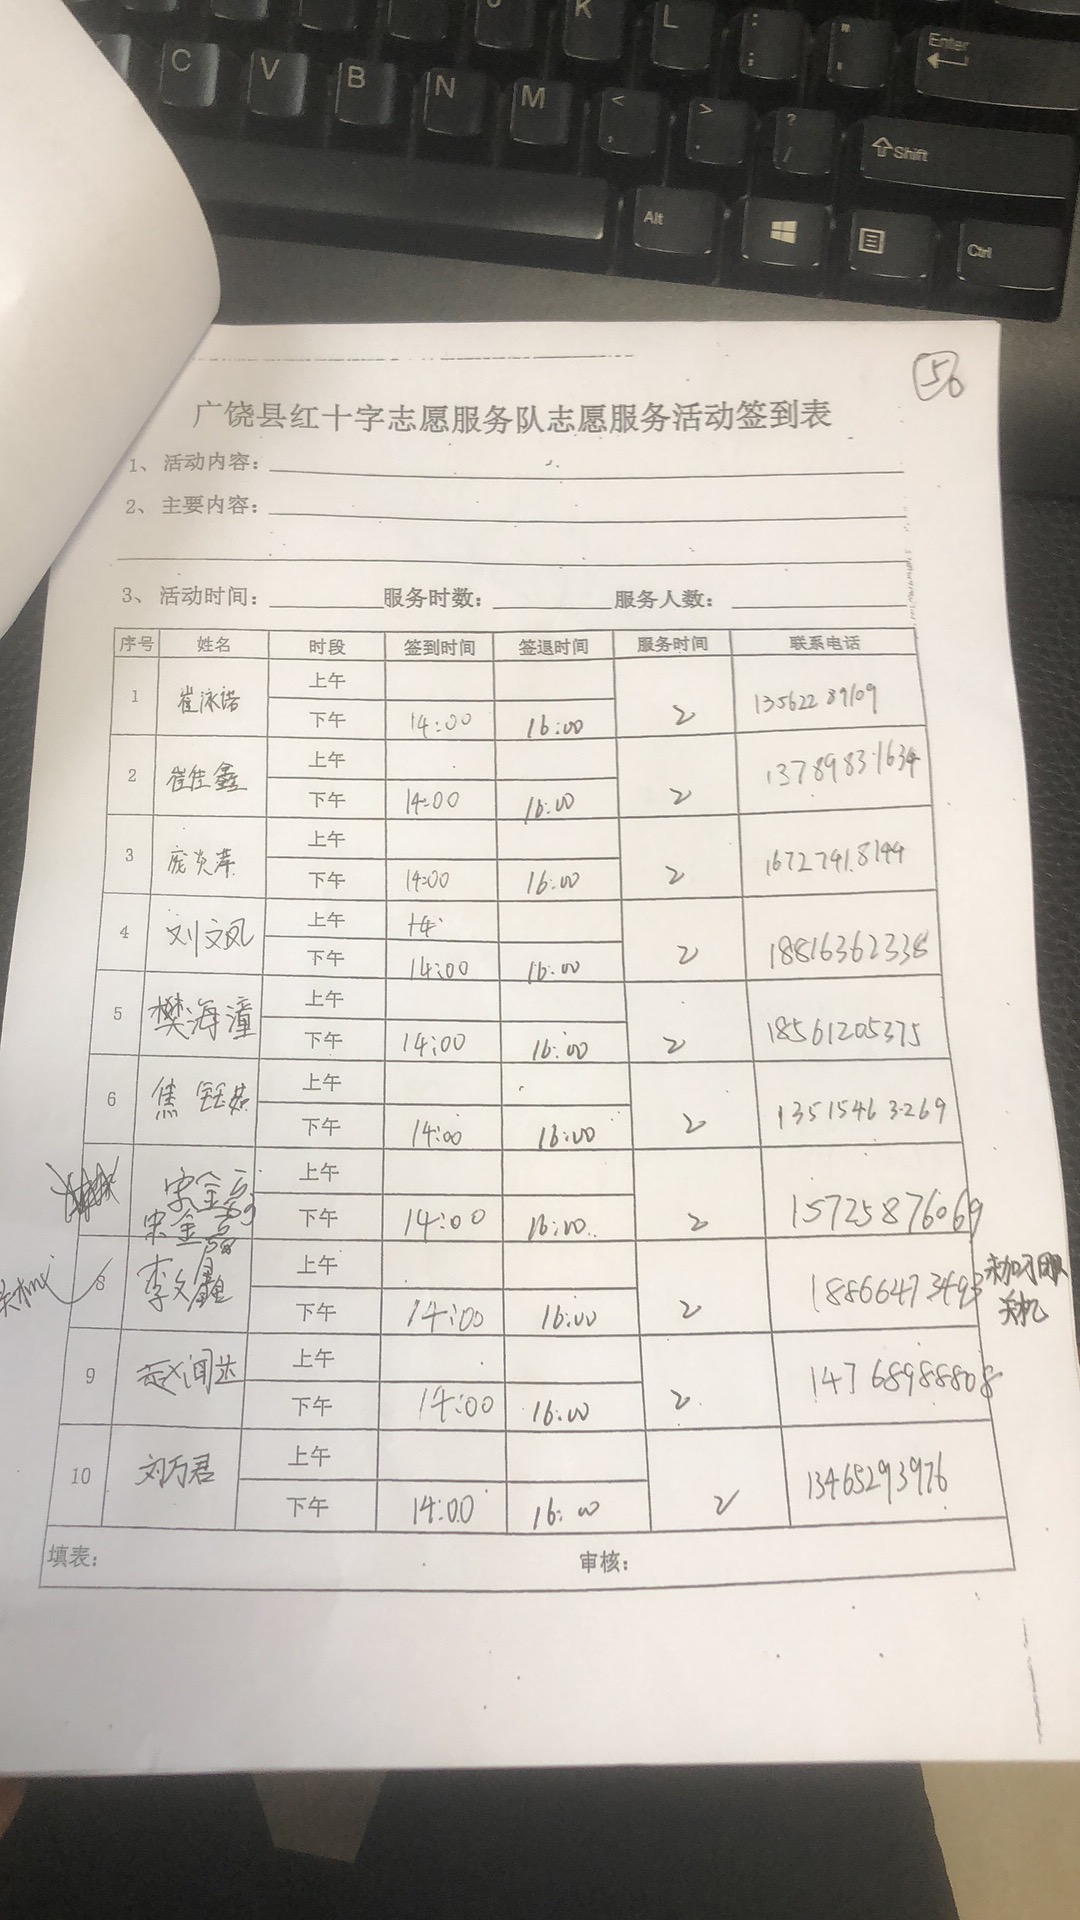 J K L : ;
" '
Enter
C V B N M < , > . ? /
Shift
Alt
Ctrl
56
广饶县红十字志愿服务队志愿服务活动签到表
1、活动内容：
2、主要内容：
3、活动时间： 服务时数： 服务人数：
序号 姓名 时段 签到时间 签退时间 服务时间 联系电话
1 崔泳诺 上午
下午 14:00 16:00 2 13562289109
2 崔佳鑫 上午
下午 14:00 16:00 2 13789831634
3 庞炎萍 上午
下午 14:00 16:00 2 16727418144
4 刘文凤 上午 14:
下午 14:00 16:00 2 18816362338
5 樊海潼 上午
下午 14:00 16:00 2 18561205375
6 焦钰茹 上午
下午 14:00 16:00 2 13515463269
宋金 上午
宋金 下午 14:00 16:00 2 15725876069
8 李文鑫 上午
下午 14:00 16:00 2 18866473493 未加团 关机
9 赵闻达 上午
下午 14:00 16:00 2 14768988808
10 刘万君 上午
下午 14:00 16:00 2 13465293976
填表： 审核：